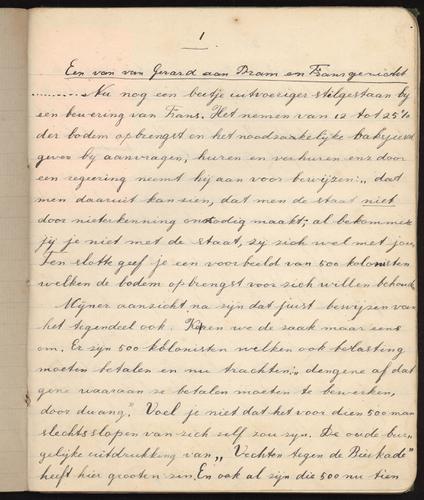 1
Een van van Gerard aan Bram en Frans gericht
.......... Nu nog een beetje uitvoeriger stilgestaan bij
een bewering van Frans. Het nemen van 12 tot 25%
der bodem opbrengst en het noodzakelijke
geven bij aanvragen, huren en verhuren enz door
een regeering neemt hij aan voor bewijzen: „dat
men daaruit kan zien, dat men de staat niet
door nieterkenning onnodig maakt; al bekommer
jij je niet met de staat, zij zich wel met jou,
Ten slotte geef je een voorbeeld van 500 kolonisten
welken de bodem opbrengst voor zich willen behoud
Mijner aanzicht na zijn dat juist bewijzen van
het tegendeel ook. Keren we de zaak maar eens
om. Er zijn 500 kolonisten welken ook belasting
moeten betalen en nu trachten: „dengene af dat
gene waaraan ze betalen moeten te bewerken,
door dwang". Voel je niet dat het voor dien 500 man
slechts slopen van zich zelf zou zijn. De oude bur
gelijke uitdrukking van „Vechten tegen de Bierkade"
heeft hier grooten zin. En ook al zijn die 500 nu tien